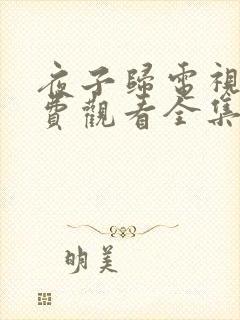 夜子歸電視
費觀看全集
明美